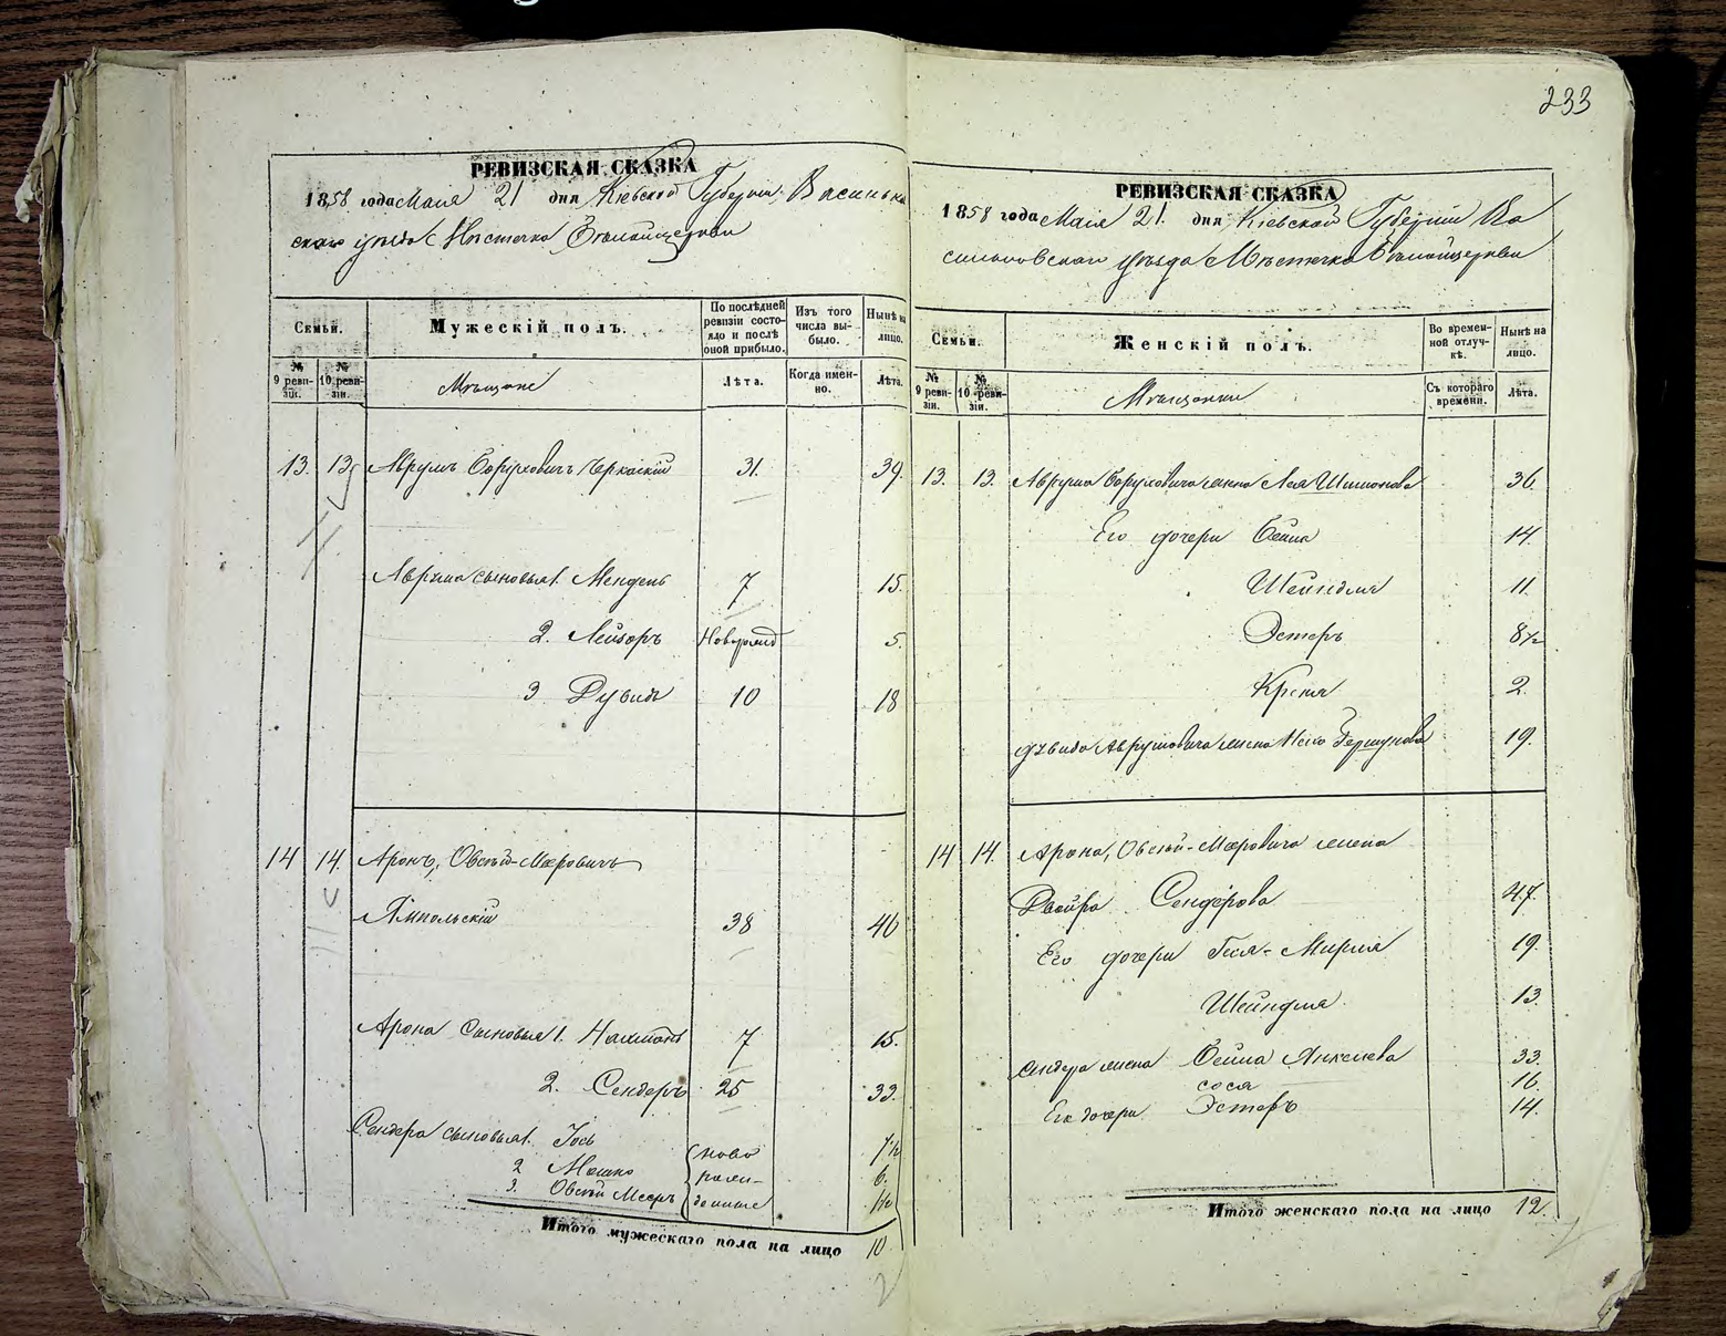 233
РЕВИЗСКАЯ СКАЗКА
1858 года Маія 21 дня Кіевской Губерніи, Василько
скаго уѣзда Мѣстечка Бѣлойцеркви
Семьи.
Мужескій полъ.
По послѣдней ревизіи состояло и послѣ оной прибыло.
Изъ того числа выбыло.
Нынѣ на лицо.
№ 9 ревизіи.
№ 10 ревизіи.
Мѣщане
Лѣта.
Когда именно.
Лѣта.
13. 13 Аврумъ Боруховичъ Черкаскій 31. 39.
Аврума сыновья 1. Мендель 7 15.
2. Лейзоръ Новорожд 5.
3 Дувидъ 10 18
14 14. Аронъ, Овсѣй-Мееровичъ
Ямпольскій 38 46
Арона Сыновья 1. Нахманъ 7 15.
2. Сендеръ 25 33.
Сендера сыновья 1. Іось 7 1/2
2 Мошко 6.
3. Овсѣй Мееръ 1/2
ново
рож-
денные
Итого мужескаго пола на лицо 10
РЕВИЗСКАЯ СКАЗКА
1858 года Маія 21. дня Кіевской Губерніи Ва
сильковскаго уѣзда Мѣстечка Бѣлойцеркви
Семьи.
Женскій полъ.
Во временной отлучкѣ.
Нынѣ на лицо.
№ 9 ревизіи.
№ 10 ревизіи.
Мѣщанки
Съ котораго времени.
Лѣта.
13. 13. Аврума Боруховича жена Лея Шимонова 36.
Его дочери Бейла 14.
Шейндля 11.
Эстеръ 8 1/2
Крейня 2.
Дувида Аврумовича жена Гершунова 19.
14 14. Арона, Овсѣй-Мееровича жена
Двойра Сендерова 47.
Его дочери Гися-Мирля 19.
Шейндля. 13.
Сендера жена Бейла Янкелева 33.
сося 16.
Его дочери Эстеръ 14.
Итого женскаго пола на лицо 12.